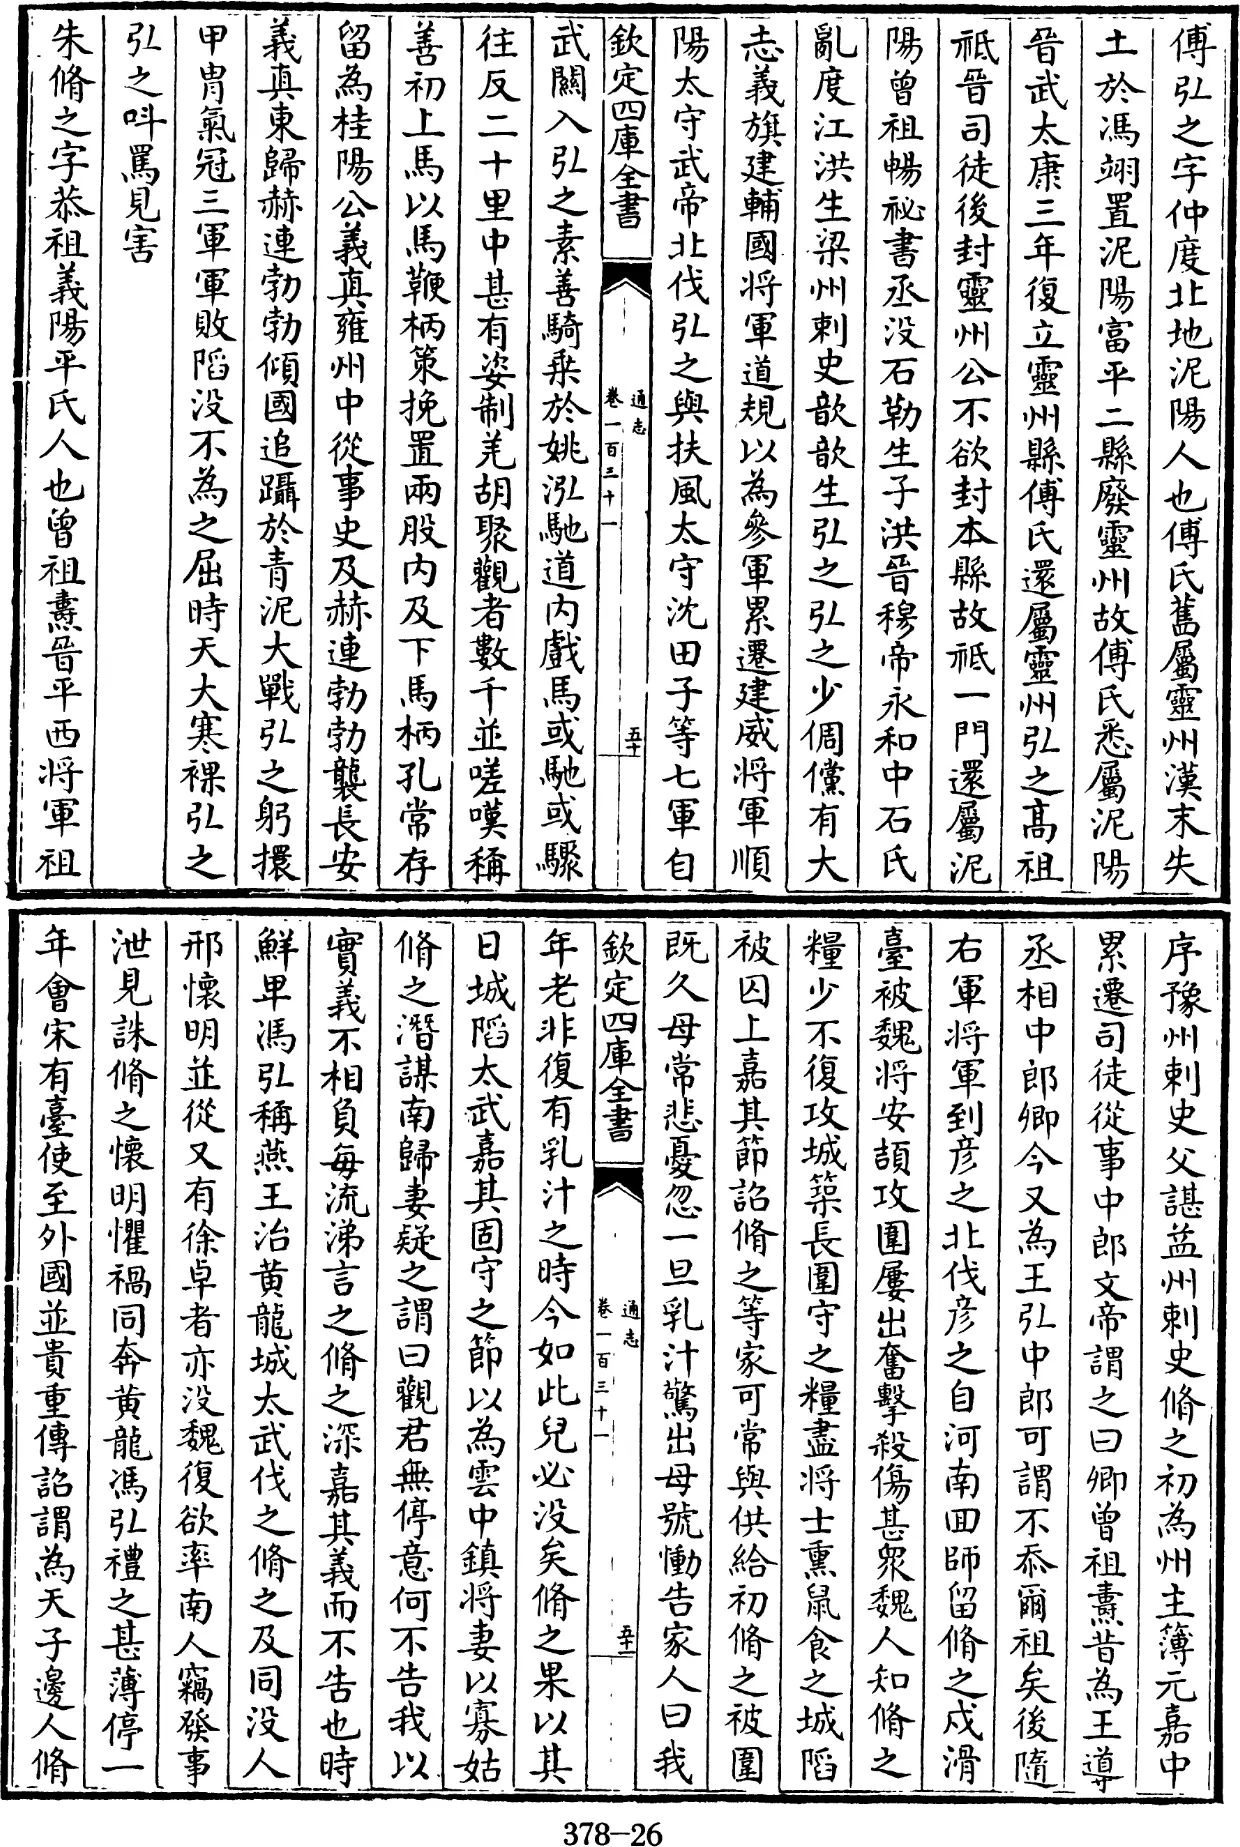 傅弘之字仲度北地泥陽人也傅氏舊屬靈州漢末失
土於馮翊置泥陽富平二縣廢靈州故傅氏悉屬泥陽
晉武太康三年復立靈州縣傅氏還屬靈州弘之高祖
祗晉司徒後封靈州公不欲封本縣故祗一門還屬泥
陽曾祖暢祕書丞没石勒生子洪晉穆帝永和中石氏
亂度江洪生梁州刺史歆歆生弘之弘之少倜儻有大
志義旗建輔國將軍道規以為參軍累遷建威將軍順
陽太守武帝北伐弘之與扶風太守沈田子等七軍自
欽定四庫全書
通志
卷一百三十一
五十
武關入弘之素善騎乗於姚泓馳道内戲馬或馳或驟
往反二十里中甚有姿制羌胡聚觀者數千並嗟嘆稱
善初上馬以馬鞭柄策挽置兩股内及下馬柄孔常存
留為桂陽公義真雍州中從事史及赫連勃勃襲長安
義真東歸赫連勃勃傾國追躡於青泥大戰弘之躬擐
甲胄氣冠三軍軍敗䧟没不為之屈時天大寒裸弘之
弘之呌罵見害
朱脩之字恭祖義陽平氏人也曾祖燾晉平西將軍祖
序豫州刺史父諶益州刺史脩之初為州主簿元嘉中
累遷司徒從事中郎文帝謂之曰卿曾祖燾昔為王導
丞相中郎卿今又為王弘中郎可謂不忝爾祖矣後隨
右軍將軍到彦之北伐彦之自河南囬師留脩之戍滑
臺被魏將安頡攻圍屢出奮擊殺傷甚衆魏人知脩之
糧少不復攻城築長圍守之糧盡將士熏鼠食之城䧟
被囚上嘉其節詔脩之等家可常與供給初脩之被圍
既久母常悲憂忽一旦乳汁驚出母號慟告家人曰我
欽定四庫全書
通志
卷一百三十一
五十一
年老非復有乳汁之時今如此兒必没矣脩之果以其
日城䧟太武嘉其固守之節以為雲中鎮將妻以寡姑
脩之潛謀南歸妻疑之謂曰觀君無停意何不告我以
實義不相負每流涕言之脩之深嘉其義而不告也時
鮮卑馮弘稱燕王治黄龍城太武伐之脩之及同没人
邢懷明並從又有徐卓者亦没魏復欲率南人竊發事
泄見誅脩之懷明懼禍同奔黄龍馮弘禮之甚薄停一
年會宋有臺使至外國並貴重傳詔謂為天子邊人脩
378-26